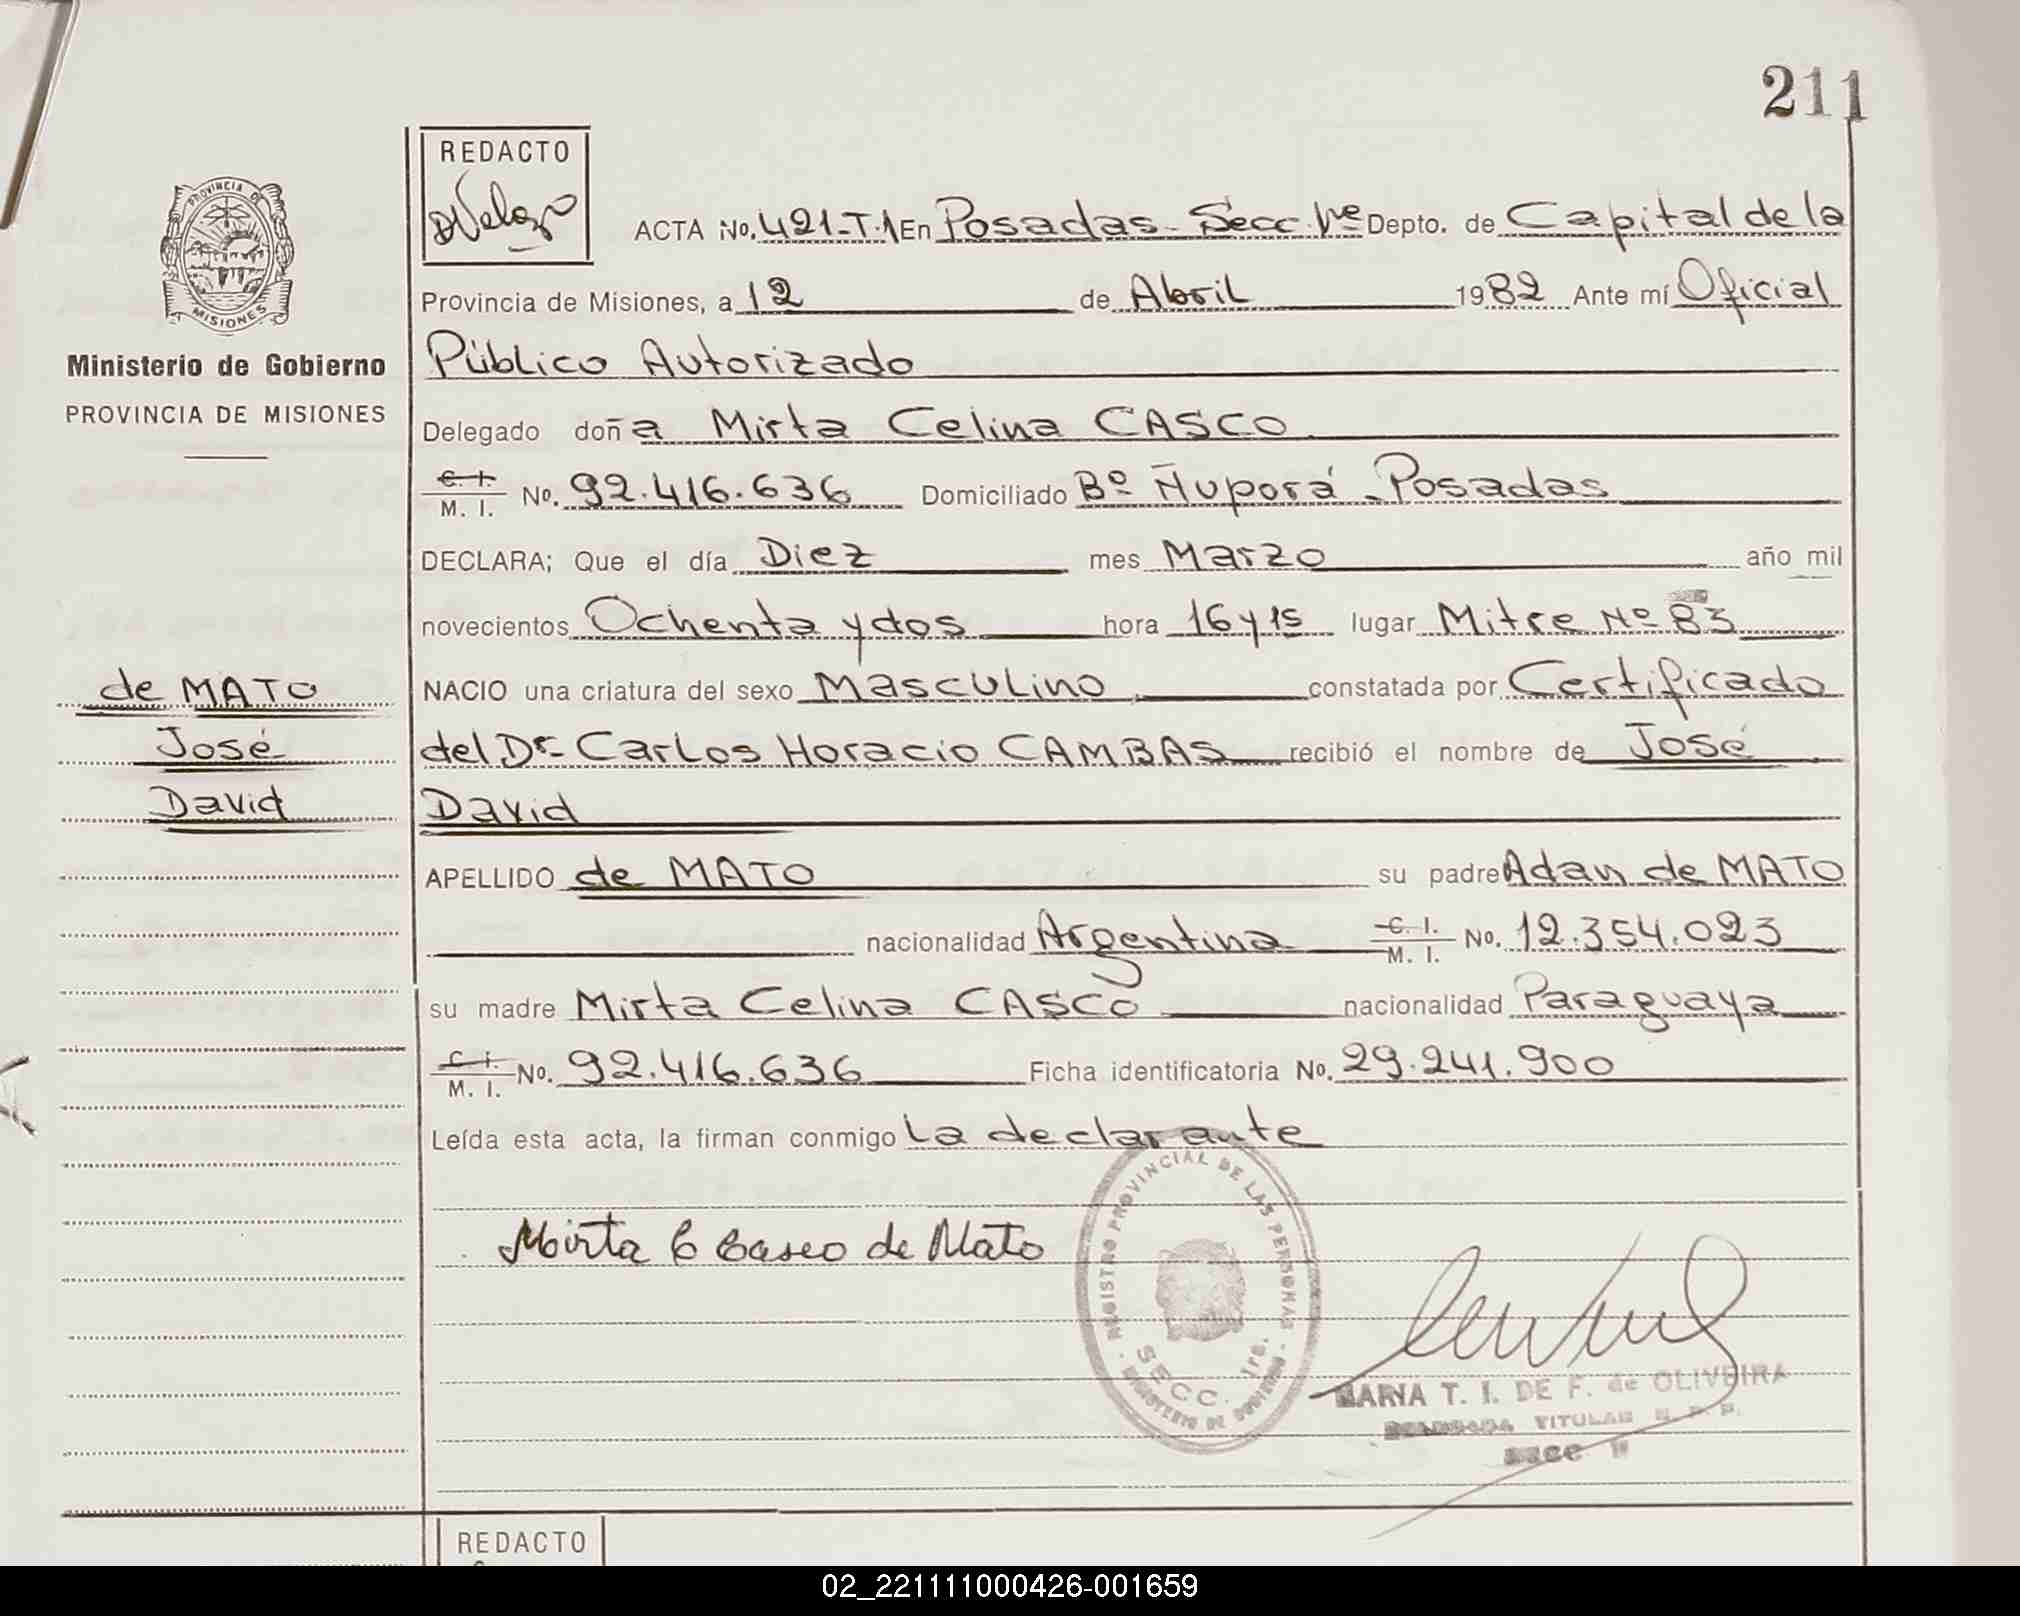 211
REDACTO
PROVINCIA DE
MISIONES
ACTA No. 421-T.1 En Posadas - Secc. 1ra Depto. de Capital de la
Provincia de Misiones, a 12 de Abril 1982 Ante mí Oficial
Ministerio de Gobierno
Público Autorizado
PROVINCIA DE MISIONES
Delegado doña Mirta Celina CASCO
C. I. M. I. No. 92.416.636 Domiciliado Bº Ñuporá - Posadas
DECLARA; Que el día Diez mes Marzo año mil
novecientos Ochenta y dos hora 16 y 15 lugar Mitre Nº 83
de MATO
NACIO una criatura del sexo Masculino constatada por Certificado
José
del Dr. Carlos Horacio CAMBAS recibió el nombre de José
David
David
APELLIDO de MATO su padre Adan de MATO
nacionalidad Argentina C. I. M. I. No. 12.354.023
su madre Mirta Celina CASCO nacionalidad Paraguaya
C. I. M. I. No. 92.416.636 Ficha identificatoria No. 29.241.900
Leída esta acta, la firman conmigo La declarante
Mirta C Casco de Mato
REGISTRO PROVINCIAL DE LAS PERSONAS
SECC. 1ra.
MINISTERIO DE GOBIERNO
MARIA T. I. DE F. de OLIVEIRA
DELEGADA TITULAR R. P. P.
REDACTO
02_221111000426-001659